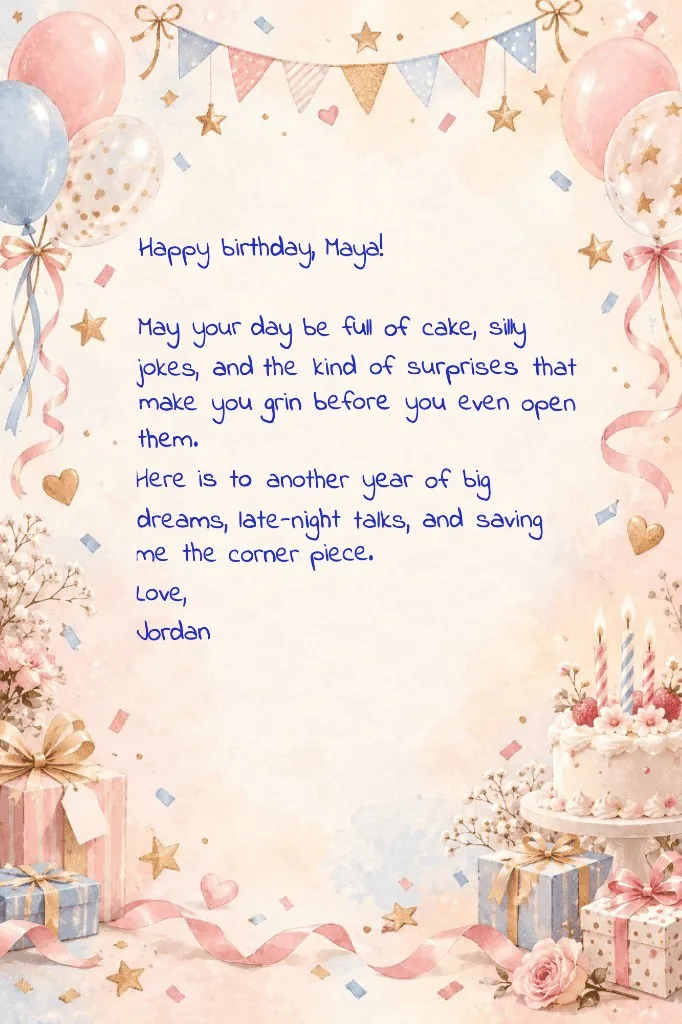 Happy birthday, Maya!
May your day be full of cake, silly
jokes, and the kind of surprises that
make you grin before you even open
them.
Here is to another year of big
dreams, late-night talks, and saving
me the corner piece.
Love,
Jordan